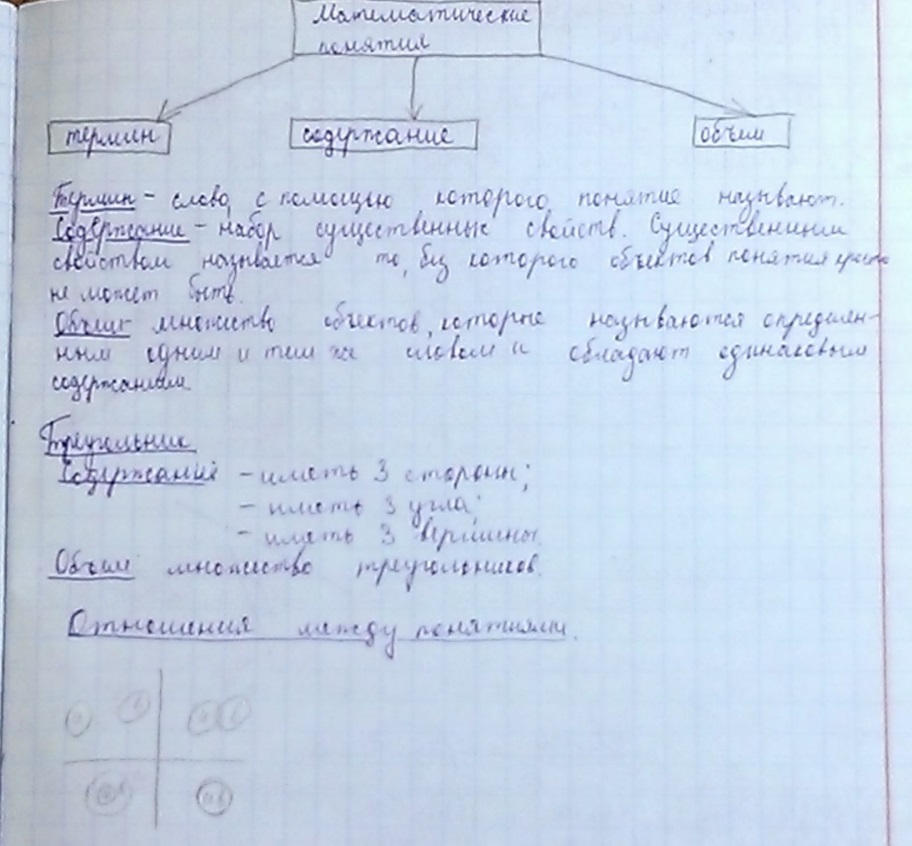 Математические
понятия
термин
содержание
объем
Термин - слово, с помощью которого понятие называют.
Содержание - набор существенных свойств. Существенным
свойством называется то, без которого объектов понятия просто
не может быть.
Объем - множество объектов, которые называются определен-
ным одним и тем же словом и обладают одинаковым
содержанием.
Треугольник
Содержание - иметь 3 стороны;
- иметь 3 угла;
- иметь 3 вершины.
Объем множество треугольников.
Отношения между понятиями.